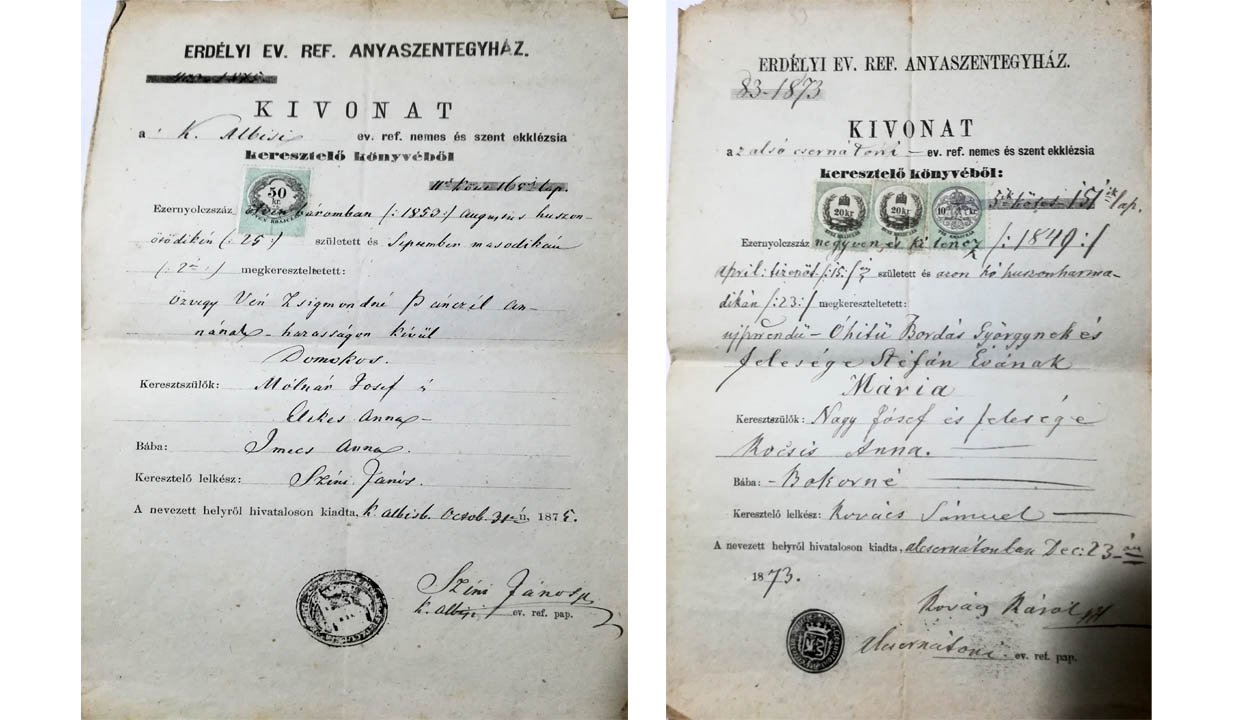 ERDÉLYI EV. REF. ANYASZENTEGYHÁZ.
KIVONAT
a K. Albisi ev. ref. nemes és szent ekklézsia
keresztelő könyvéből
50
kr
lap.
Ezernyolczszáz ötven háromban /:1853:/ augustus huszon-
ötödikén /:25:/ született és September masodikán
megkereszteltetett:
özvegy Vén Zsigmondné Pánczél An-
nának házasságon kívül
Domokos.
Keresztszülők: Molnár Josef é
Elekes Anna
Bába: Imecs Anna
Keresztelő lelkész: Színi János.
A nevezett helyről hivataloson kiadta, k. albisb. Octob. 31-én, 1875.
Színi János
k. albisi ev. ref. pap.
ERDÉLYI EV. REF. ANYASZENTEGYHÁZ.
83-1873
KIVONAT
az alsó csernátoni ev. ref. nemes és szent ekklézsia
keresztelő könyvéből:
20 kr
20 kr
10
kötés 151 ik lap.
Ezernyolczszáz negyven és kilencz /:1849:/
april: tizenöt /:15:/ született és azon hó huszonharma-
dikán /:23:/ megkereszteltetett:
ujprendü - Óhitü Bordás Györgynek és
felesége Stéfán Évának
Mária
Keresztszülők: Nagy Jósef és felesége
Kocsis Anna.
Bába: Bokorné
Keresztelő lelkész: Kovács Sámuel
A nevezett helyről hivataloson kiadta, alcsernátonban Dec: 23-án
1873.
Kovács Károly
alcsernátoni ev. ref. pap.